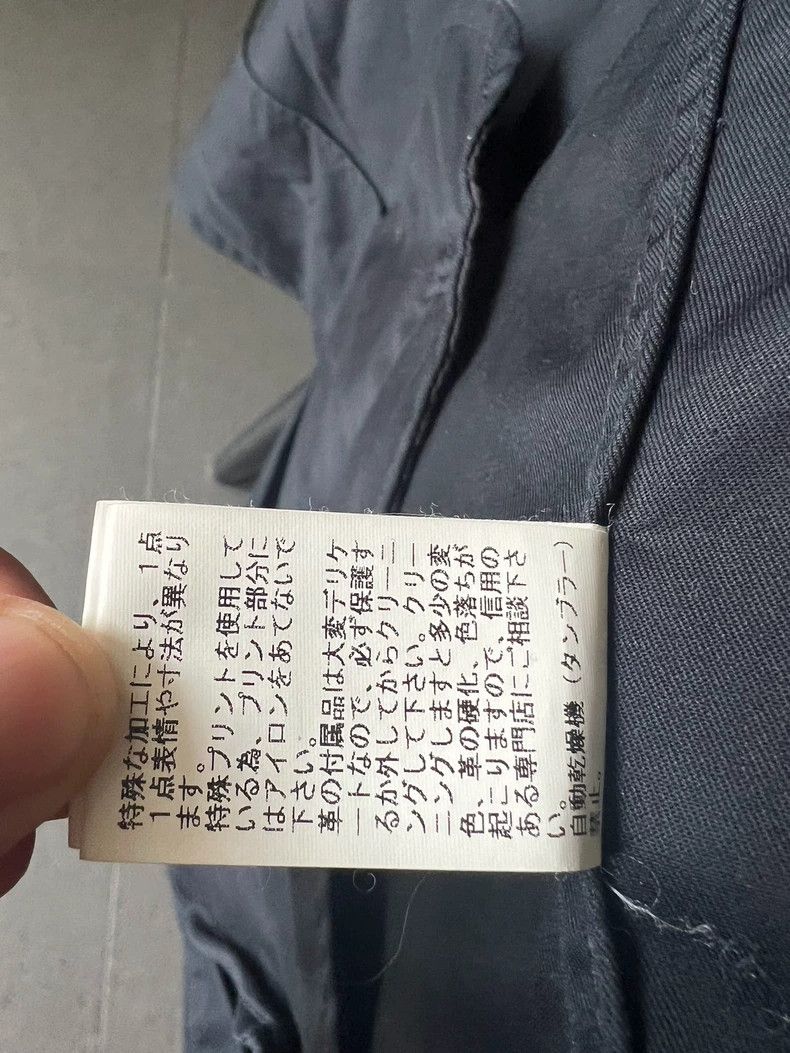 特殊な加工により、1点
1点表情や寸法が異なり
ます。
特殊プリントを使用して
いる為、プリント部分に
はアイロンをあてないで
下さい。
革の付属品は大変デリケ
ートなので、必ず保護す
るか外してからクリーニ
ングして下さい。クリー
ニングしますと多少の変
色、革の硬化、色落ちが
起こりますので、信用の
ある専門店にご相談下さ
い。
自動乾燥機（タンブラー）
禁止。